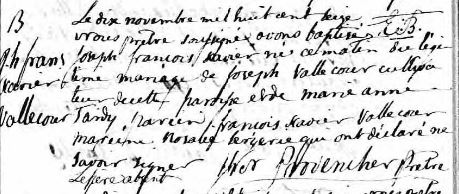 B
Jh frans
Xavier
Vallecour
Le dix novembre mil huit cent seize
nous prêtre soussigné avons baptisé
Joseph françois Xavier né ce matin du légi
time mariage de Joseph Vallecour cultiva
teur de cette paroisse et de marie anne
Tardy, parein françois Xavier Vallecour
mareinne Rosalie bergerie qui ont déclaré ne
savoir signer
Le pere absent
Provencher Prêtre